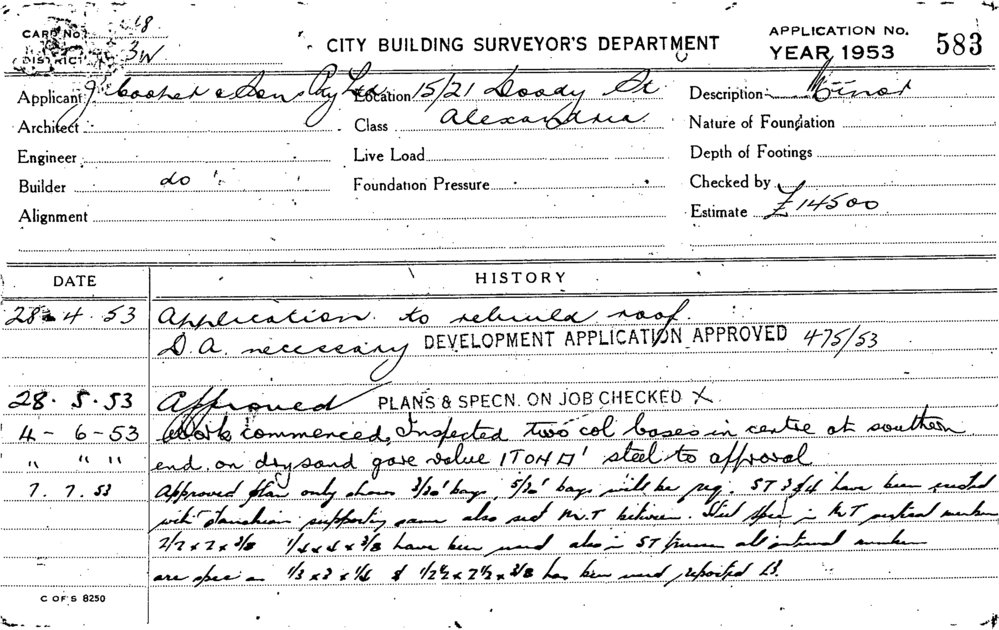 CARD No. 48
DISTRICT 3W
CITY BUILDING SURVEYOR'S DEPARTMENT
APPLICATION No.
YEAR 1953 583
Applicant J. Cooper & Son Pty Ltd Location 15/21 Doody St Description Minor
Architect Class Alexandria Nature of Foundation
Engineer Live Load Depth of Footings
Builder do Foundation Pressure Checked by
Alignment Estimate £14500
DATE HISTORY
28-4-53 Application to rebuild roof.
D.A. necessary DEVELOPMENT APPLICATION APPROVED 475/53
28.5.53 Approved PLANS & SPECN. ON JOB CHECKED X
4-6-53 Work commenced, Inspected two col bases in centre at southern
" " " end, on dry sand gave value 1 TON □' steel to approval
7.7.53 Approved plan only shows 3/30' bays, 5/30' bays will be req. ST 3 & 4 have been erected
with stanchions supporting same also M.T between. in M T vertical member
2/2 x 2 x 3/8 1/4 x 4 x 3/8 have been used also in ST all internal members
are spec as 1/3 x 3 x 1/4 & 1/2½ x 2½ x 3/8 has been used reported
C OF S 8250